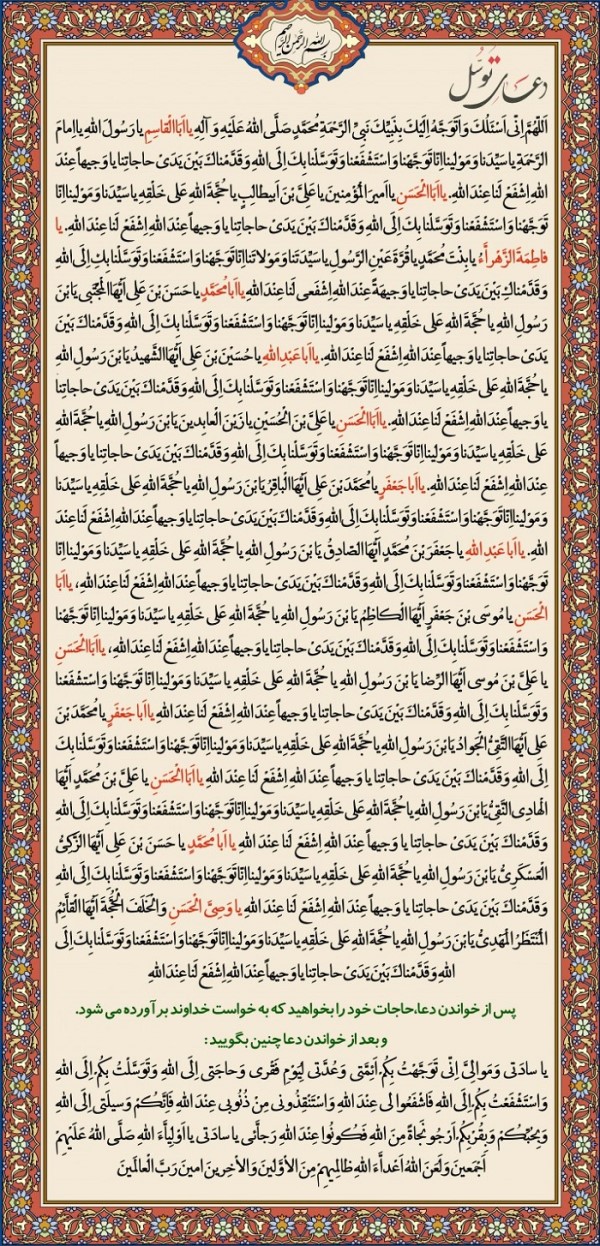 بسم الله الرحمن الرحیم
دعای توسل
اَللّهُمَّ اِنّی اَسْئَلُكَ وَ اَتَوَجَّهُ اِلَیْكَ بِنَبِیِّكَ نَبِیِّ الرَّحْمَةِ مُحَمَّدٍ صَلَّی اللهُ عَلَیْهِ وَ آلِهِ یا اَبَا الْقاسِمِ یا رَسُولَ اللهِ یا اِمامَ
الرَّحْمَةِ یا سَیِّدَنا وَ مَوْلینا اِنّا تَوَجَّهْنا وَاسْتَشْفَعْنا وَ تَوَسَّلْنا بِكَ اِلَی اللهِ وَ قَدَّمْناكَ بَیْنَ یَدَیْ حاجاتِنا یا وَجیهاً عِنْدَ
اللهِ اِشْفَعْ لَنا عِنْدَ اللهِ. یا اَبَا الْحَسَنِ یا اَمیرَ الْمُؤْمِنینَ یا عَلِیَّ بْنَ اَبیطالِبٍ یا حُجَّةَ اللهِ عَلی خَلْقِهِ یا سَیِّدَنا وَ مَوْلینا اِنّا
تَوَجَّهْنا وَاسْتَشْفَعْنا وَ تَوَسَّلْنا بِكَ اِلَی اللهِ وَ قَدَّمْناكَ بَیْنَ یَدَیْ حاجاتِنا یا وَجیهاً عِنْدَ اللهِ اِشْفَعْ لَنا عِنْدَ اللهِ. یا
فاطِمَةَ الزَّهْراَّءُ یا بِنْتَ مُحَمَّدٍ یا قُرَّةَ عَیْنِ الرَّسُولِ یا سَیِّدَتَنا وَ مَوْلاتَنا اِنّا تَوَجَّهْنا وَاسْتَشْفَعْنا وَ تَوَسَّلْنا بِكِ اِلَی اللهِ
وَ قَدَّمْناكِ بَیْنَ یَدَیْ حاجاتِنا یا وَجیهَةً عِنْدَ اللهِ اِشْفَعی لَنا عِنْدَ اللهِ یا اَبا مُحَمَّدٍ یا حَسَنَ بْنَ عَلِیٍ اَیُّهَا الْمُجْتَبی یَا بْنَ
رَسُولِ اللهِ یا حُجَّةَ اللهِ عَلی خَلْقِهِ یا سَیِّدَنا وَ مَوْلینا اِنّا تَوَجَّهْنا وَاسْتَشْفَعْنا وَ تَوَسَّلْنا بِكَ اِلَی اللهِ وَ قَدَّمْناكَ بَیْنَ
یَدَیْ حاجاتِنا یا وَجیهاً عِنْدَ اللهِ اِشْفَعْ لَنا عِنْدَ اللهِ. یا اَبا عَبْدِ اللهِ یا حُسَیْنَ بْنَ عَلِیٍ اَیُّهَا الشَّهیدُ یَا بْنَ رَسُولِ اللهِ
یا حُجَّةَ اللهِ عَلی خَلْقِهِ یا سَیِّدَنا وَ مَوْلینا اِنّا تَوَجَّهْنا وَاسْتَشْفَعْنا وَ تَوَسَّلْنا بِكَ اِلَی اللهِ وَ قَدَّمْناكَ بَیْنَ یَدَیْ حاجاتِنا
یا وَجیهاً عِنْدَ اللهِ اِشْفَعْ لَنا عِنْدَ اللهِ. یا اَبَا الْحَسَنِ یا عَلِیَّ بْنَ الْحُسَیْنِ یا زَیْنَ الْعابِدینَ یَا بْنَ رَسُولِ اللهِ یا حُجَّةَ اللهِ
عَلی خَلْقِهِ یا سَیِّدَنا وَ مَوْلینا اِنّا تَوَجَّهْنا وَاسْتَشْفَعْنا وَ تَوَسَّلْنا بِكَ اِلَی اللهِ وَ قَدَّمْناكَ بَیْنَ یَدَیْ حاجاتِنا یا وَجیهاً
عِنْدَ اللهِ اِشْفَعْ لَنا عِنْدَ اللهِ. یا اَبا جَعْفَرٍ یا مُحَمَّدَ بْنَ عَلِیٍ اَیُّهَا الْباقِرُ یَا بْنَ رَسُولِ اللهِ یا حُجَّةَ اللهِ عَلی خَلْقِهِ یا سَیِّدَنا
وَ مَوْلینا اِنّا تَوَجَّهْنا وَاسْتَشْفَعْنا وَ تَوَسَّلْنا بِكَ اِلَی اللهِ وَ قَدَّمْناكَ بَیْنَ یَدَیْ حاجاتِنا یا وَجیهاً عِنْدَ اللهِ اِشْفَعْ لَنا عِنْدَ
اللهِ. یا اَبا عَبْدِ اللهِ یا جَعْفَرَ بْنَ مُحَمَّدٍ اَیُّهَا الصّادِقُ یَا بْنَ رَسُولِ اللهِ یا حُجَّةَ اللهِ عَلی خَلْقِهِ یا سَیِّدَنا وَ مَوْلینا اِنّا
تَوَجَّهْنا وَاسْتَشْفَعْنا وَ تَوَسَّلْنا بِكَ اِلَی اللهِ وَ قَدَّمْناكَ بَیْنَ یَدَیْ حاجاتِنا یا وَجیهاً عِنْدَ اللهِ اِشْفَعْ لَنا عِنْدَ اللهِ، یا اَبَا
الْحَسَنِ یا مُوسَی بْنَ جَعْفَرٍ اَیُّهَا الْكاظِمُ یَا بْنَ رَسُولِ اللهِ یا حُجَّةَ اللهِ عَلی خَلْقِهِ یا سَیِّدَنا وَ مَوْلینا اِنّا تَوَجَّهْنا
وَاسْتَشْفَعْنا وَ تَوَسَّلْنا بِكَ اِلَی اللهِ وَ قَدَّمْناكَ بَیْنَ یَدَیْ حاجاتِنا یا وَجیهاً عِنْدَ اللهِ اِشْفَعْ لَنا عِنْدَ اللهِ، یا اَبَا الْحَسَنِ
یا عَلِیَّ بْنَ مُوسی اَیُّهَا الرِّضا یَا بْنَ رَسُولِ اللهِ یا حُجَّةَ اللهِ عَلی خَلْقِهِ یا سَیِّدَنا وَ مَوْلینا اِنّا تَوَجَّهْنا وَاسْتَشْفَعْنا
وَ تَوَسَّلْنا بِكَ اِلَی اللهِ وَ قَدَّمْناكَ بَیْنَ یَدَیْ حاجاتِنا یا وَجیهاً عِنْدَ اللهِ اِشْفَعْ لَنا عِنْدَ اللهِ یا اَبا جَعْفَرٍ یا مُحَمَّدَ بْنَ
عَلِیٍ اَیُّهَا التَّقِیُّ الْجَوادُ یَا بْنَ رَسُولِ اللهِ یا حُجَّةَ اللهِ عَلی خَلْقِهِ یا سَیِّدَنا وَ مَوْلینا اِنّا تَوَجَّهْنا وَاسْتَشْفَعْنا وَ تَوَسَّلْنا بِكَ
اِلَی اللهِ وَ قَدَّمْناكَ بَیْنَ یَدَیْ حاجاتِنا یا وَجیهاً عِنْدَ اللهِ اِشْفَعْ لَنا عِنْدَ اللهِ یا اَبَا الْحَسَنِ یا عَلِیَّ بْنَ مُحَمَّدٍ اَیُّهَا
الْهادِی النَّقِیُّ یَا بْنَ رَسُولِ اللهِ یا حُجَّةَ اللهِ عَلی خَلْقِهِ یا سَیِّدَنا وَ مَوْلینا اِنّا تَوَجَّهْنا وَاسْتَشْفَعْنا وَ تَوَسَّلْنا بِكَ اِلَی اللهِ
وَ قَدَّمْناكَ بَیْنَ یَدَیْ حاجاتِنا یا وَجیهاً عِنْدَ اللهِ اِشْفَعْ لَنا عِنْدَ اللهِ یا اَبا مُحَمَّدٍ یا حَسَنَ بْنَ عَلِیٍ اَیُّهَا الزَّكِیُّ
الْعَسْكَرِیُّ یَا بْنَ رَسُولِ اللهِ یا حُجَّةَ اللهِ عَلی خَلْقِهِ یا سَیِّدَنا وَ مَوْلینا اِنّا تَوَجَّهْنا وَاسْتَشْفَعْنا وَ تَوَسَّلْنا بِكَ اِلَی اللهِ
وَ قَدَّمْناكَ بَیْنَ یَدَیْ حاجاتِنا یا وَجیهاً عِنْدَ اللهِ اِشْفَعْ لَنا عِنْدَ اللهِ یا وَصِیَّ الْحَسَنِ وَ الْخَلَفَ الْحُجَّةَ اَیُّهَا الْقاَّئِمُ
الْمُنْتَظَرُ الْمَهْدِیُّ یَا بْنَ رَسُولِ اللهِ یا حُجَّةَ اللهِ عَلی خَلْقِهِ یا سَیِّدَنا وَ مَوْلینا اِنّا تَوَجَّهْنا وَاسْتَشْفَعْنا وَ تَوَسَّلْنا بِكَ اِلَی
اللهِ وَ قَدَّمْناكَ بَیْنَ یَدَیْ حاجاتِنا یا وَجیهاً عِنْدَ اللهِ اِشْفَعْ لَنا عِنْدَ اللهِ
پس از خواندن دعا،حاجات خود را بخواهید که به خواست خداوند برآورده می شود.
و بعد از خواندن دعا چنین بگویید :
یا سادَتی وَ مَوالِیَّ اِنّی تَوَجَّهْتُ بِكُمْ اَئِمَّتی وَ عُدَّتی لِیَوْمِ فَقْری وَ حاجَتی اِلَی اللهِ وَ تَوَسَّلْتُ بِكُمْ اِلَی اللهِ
وَاسْتَشْفَعْتُ بِكُمْ اِلَی اللهِ فَاشْفَعُوا لی عِنْدَ اللهِ وَاسْتَنْقِذُونی مِنْ ذُنُوبی عِنْدَ اللهِ فَاِنَّكُمْ وَسیلَتی اِلَی اللهِ
وَ بِحُبِّكُمْ وَ بِقُرْبِكُمْ اَرْجُو نَجاةً مِنَ اللهِ فَكُونُوا عِنْدَ اللهِ رَجاَّئی یا سادَتی یا اَوْلِیاَّءَ اللهِ صَلَّی اللهُ عَلَیْهِمْ
اَجْمَعینَ وَ لَعَنَ اللهُ اَعْداَّءَ اللهِ ظالِمیهِمْ مِنَ الاَْوَّلینَ وَ الاْخِرینَ امینَ رَبَّ الْعالَمینَ